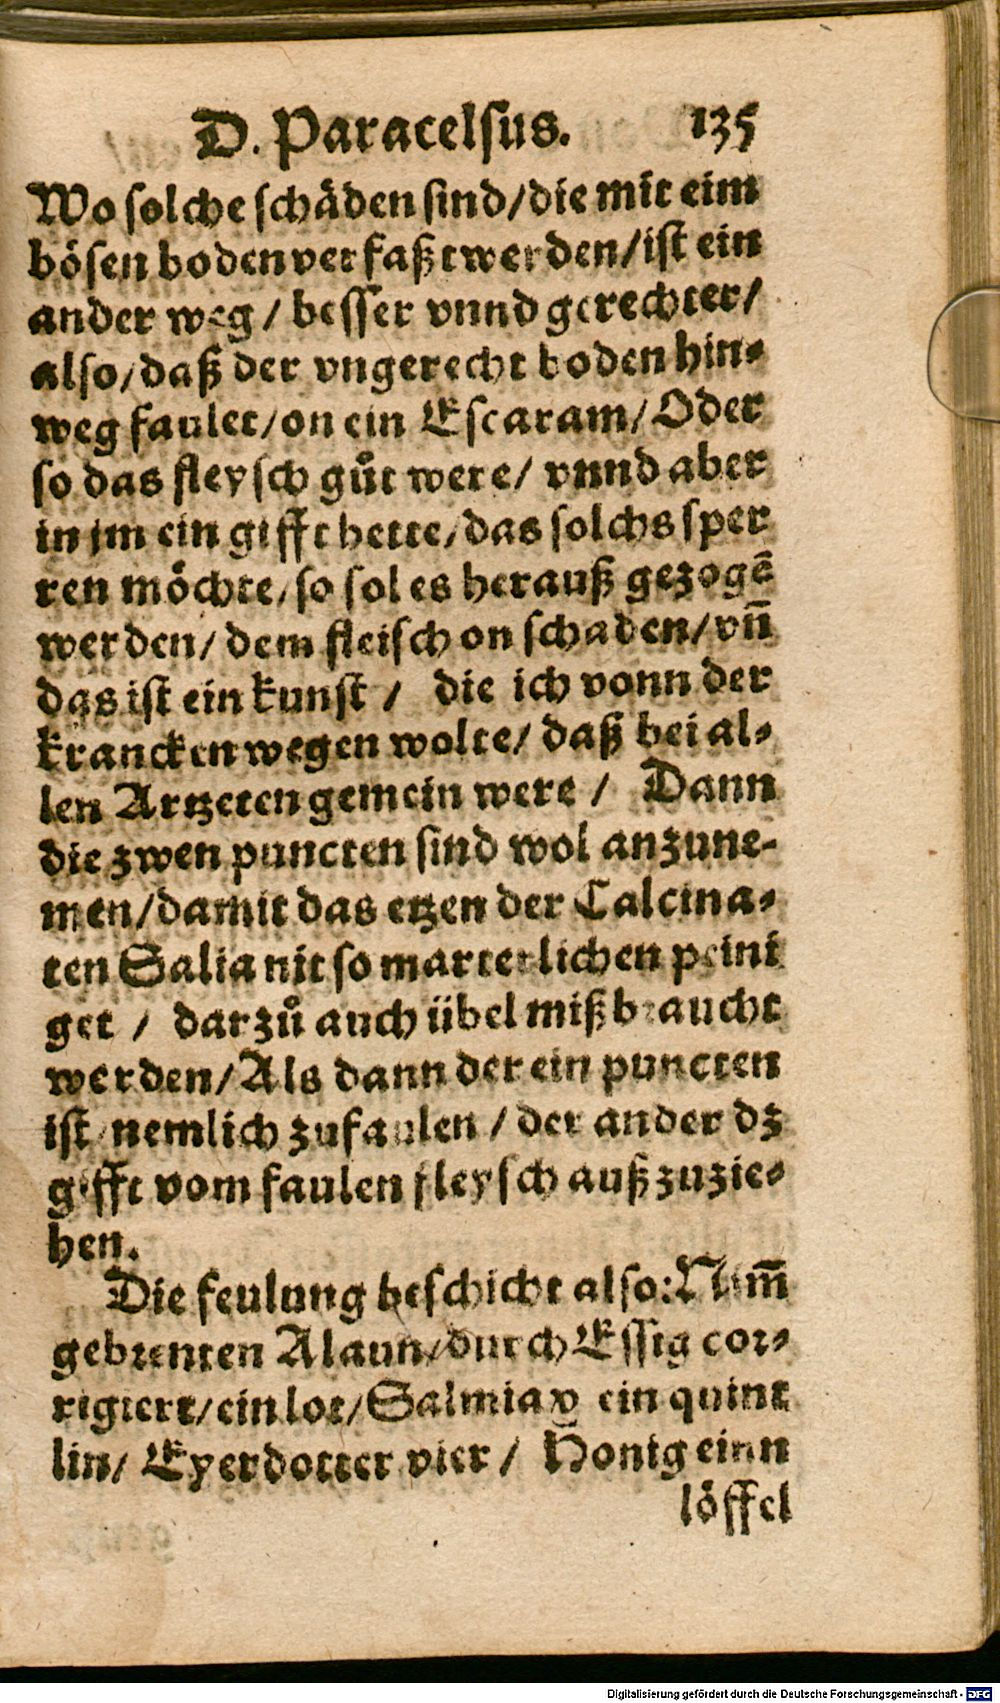 D. Paracelsus. 135
Wo solche schäden sind/die mit eim
bösen boden verfaßt werden/ist ein
ander weg / besser vnnd gerechter/
also/daß der vngerecht boden hin-
weg faulet/on ein Escaram/Oder
so das fleysch gůt were/ vnnd aber
in jm ein gifft hette/das solchs sper
ren möchte/so sol es herauß gezogē
werden/ dem fleisch on schaden/vn̄
das ist ein kunst / die ich vonn der
krancken wegen wolte/ daß bei al-
len Artzeten gemein were / Dann
die zwen puncten sind wol anzune-
men/damit das etzen der Calcina-
ten Salia nit so marterlichen peini
get / darzů auch übel mißbraucht
werden/Als dann der ein puncten
ist nemlich zufaulen / der ander dz
gifft vom faulen fleysch außzuzie-
hen.
Die feulung beschicht also:Nim̄
gebrenten Alaun/durch Essig cor-
rigiert/ein lot/Salmiax ein quint
lin/ Eyerdotter vier / Honig einn
löffel
Digitalisierung gefördert durch die Deutsche Forschungsgemeinschaft - DFG